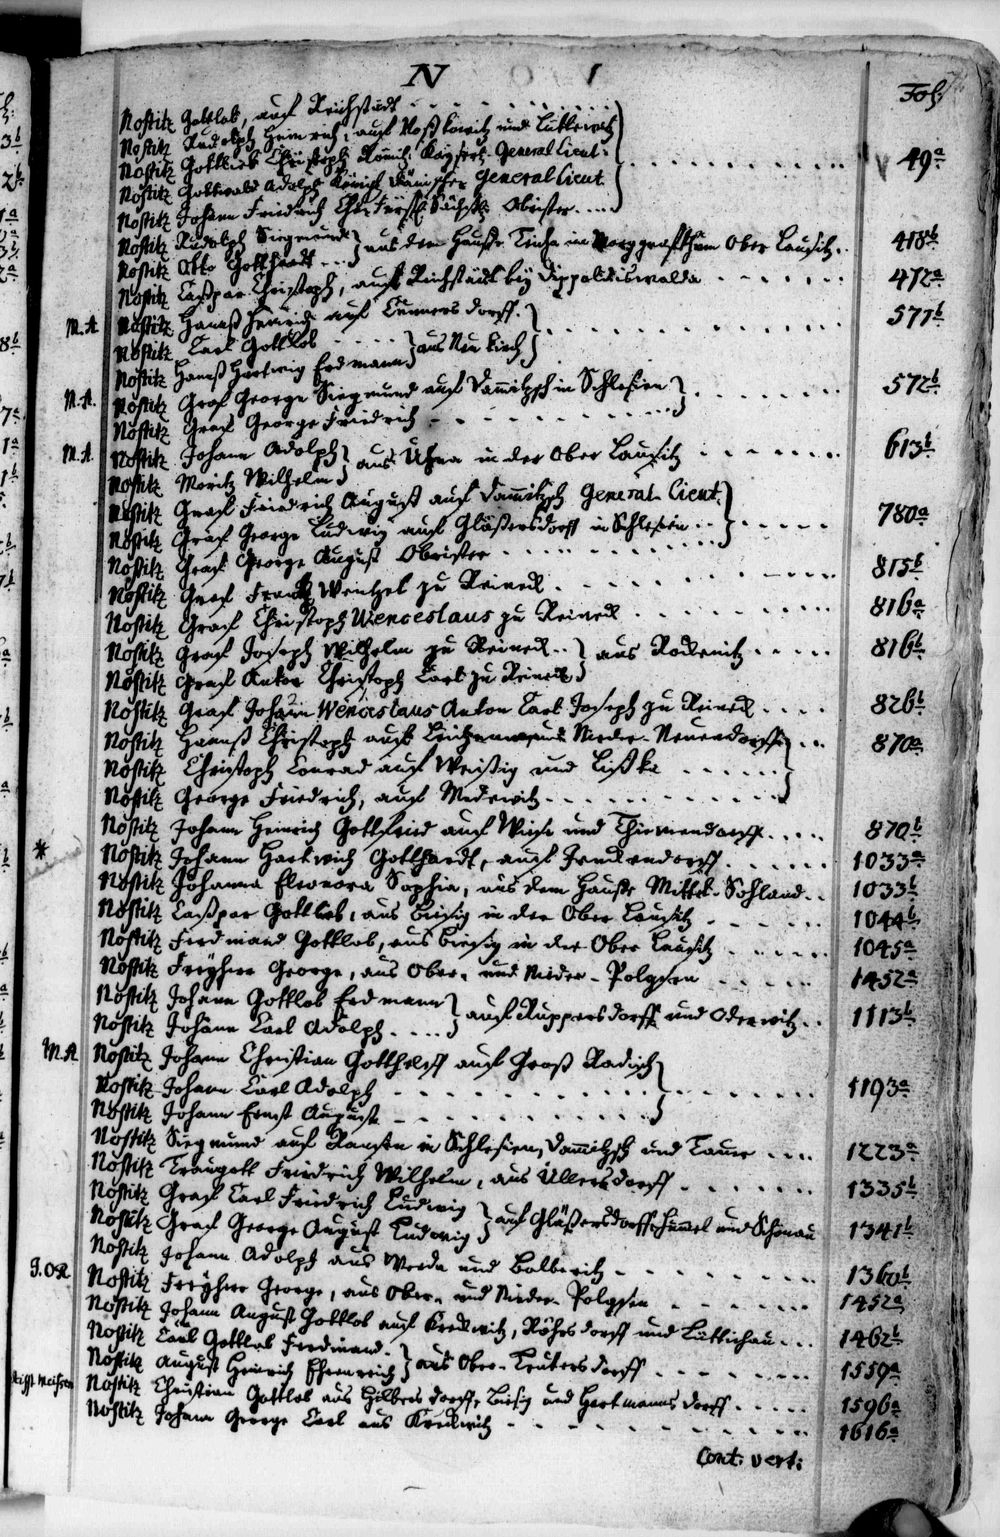 N O I
Fol.
Nostitz Gottlob, auf Reichstädt
Nostitz Rudolph Heinrich, auf Noßkowitz und
Nostitz Gottlieb Christoph Römisch Kayserl. General Lieut.
Nostitz Gottwald Adolph Königl. Dänischer General Lieut. 49a
Nostitz Johann Friedrich ChurFürstl. Sächß. Obrister
Nostitz Rudolph Siegmund
Nostitz Otto Gotthardt aus dem Hauße in Marggraffthum Ober Lausitz 418b
Nostitz Caßpar Christoph, auf Reichstädt bey Dippoldiswalda 472a
M.A. Nostitz Hannß Heinrich auf Cunnersdorff 577b
Nostitz Carl Gottlob
Nostitz Hannß Hartwig Erdmann aus Neukirch
M.A. Nostitz Graf George Siegmund auf in Schlesien 572b
Nostitz Graf George Friedrich
M.A. Nostitz Johann Adolph
Nostitz Moritz Wilhelm aus Uhna in der Ober Lausitz 613b
Nostitz Graf Friedrich August auf General-Lieut.
Nostitz Graf George Ludwig auf Gläßersdorff in Schlesien 780a
Nostitz Graf George August Obrister
Nostitz Graf Frantz Wentzel zu Reineck 815b
Nostitz Graf Christoph Wenceslaus zu Reineck 816a
Nostitz Graf Joseph Wilhelm zu Reineck aus Rockenitz 816b
Nostitz Graf Anton Christoph Carl zu Reineck
Nostitz Graf Johann Wenceslaus Anton Carl Joseph zu Reineck 826b
Nostitz Hannß Christoph auf und Nieder-Neuendorff 870a
Nostitz Christoph Conrad auf Weißig und Lißka
Nostitz George Friedrich, auf Medewitz
Nostitz Johann Heinrich Gottfried auf Wiesa und Thiemendorff 870b
* Nostitz Johann Hartwich Gotthardt, auf Jenckendorff 1033a
Nostitz Johanna Eleonora Sophia, aus dem Hauße Mittel-Sohland 1033b
Nostitz Caßpar Gottlob, aus Biesig in der Ober Lausitz 1044b
Nostitz Ferdinand Gottlob, aus Biesig in der Ober Lausitz 1045a
Nostitz Freyherr George, aus Ober- und Nieder-Polgsen 1452a
Nostitz Johann Gottlob Erdmann
Nostitz Johann Carl Adolph auf Ruppersdorff und Oderwitz 1113b
M.A. Nostitz Johann Christian Gotthelff auf Groß Radisch
Nostitz Johann Carl Adolph 1193a
Nostitz Johann Ernst August
Nostitz Siegmund auf Ransen in Schlesien, und Tauer 1223a
Nostitz Traugott Friedrich Wilhelm, aus Ullersdorff 1335b
Nostitz Graf Carl Friedrich Ludwig
Nostitz Graf George August Ludwig auf Gläßersdorff, Hummel und Schönau 1341b
Nostitz Johann Adolph aus Werda und Bolberitz 1360b
J.OR. Nostitz Freyherr George, aus Ober- und Nieder-Polgsen 1452a
Nostitz Johann August Gottlob auf Kreckwitz, Röhrsdorff und Lüttichau 1462b
Nostitz Carl Gottlob Ferdinand
Nostitz August Heinrich Ehrenreich aus Ober-Leutersdorff 1559a
Stifft Meissen Nostitz Christian Gottlob aus Hilbersdorff, Biesig und Hartmannsdorff 1596a
Nostitz Johann George Carl aus Kreckwitz 1616a
Cont: vert: